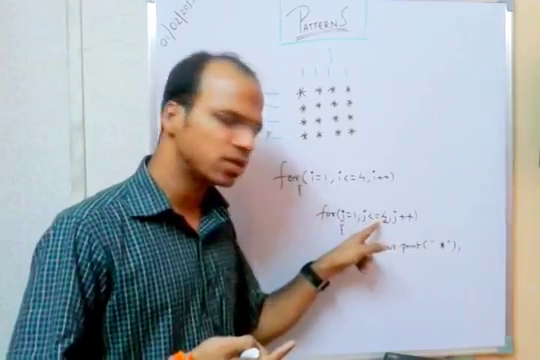 01/02/201
PATTERNS
j
| | | |
* * * *
* * * *
* * * *
* * * *
for(i=1, i<=4, i++)
{
for(j=1, j<=4, j++)
{
out.print(" *"),